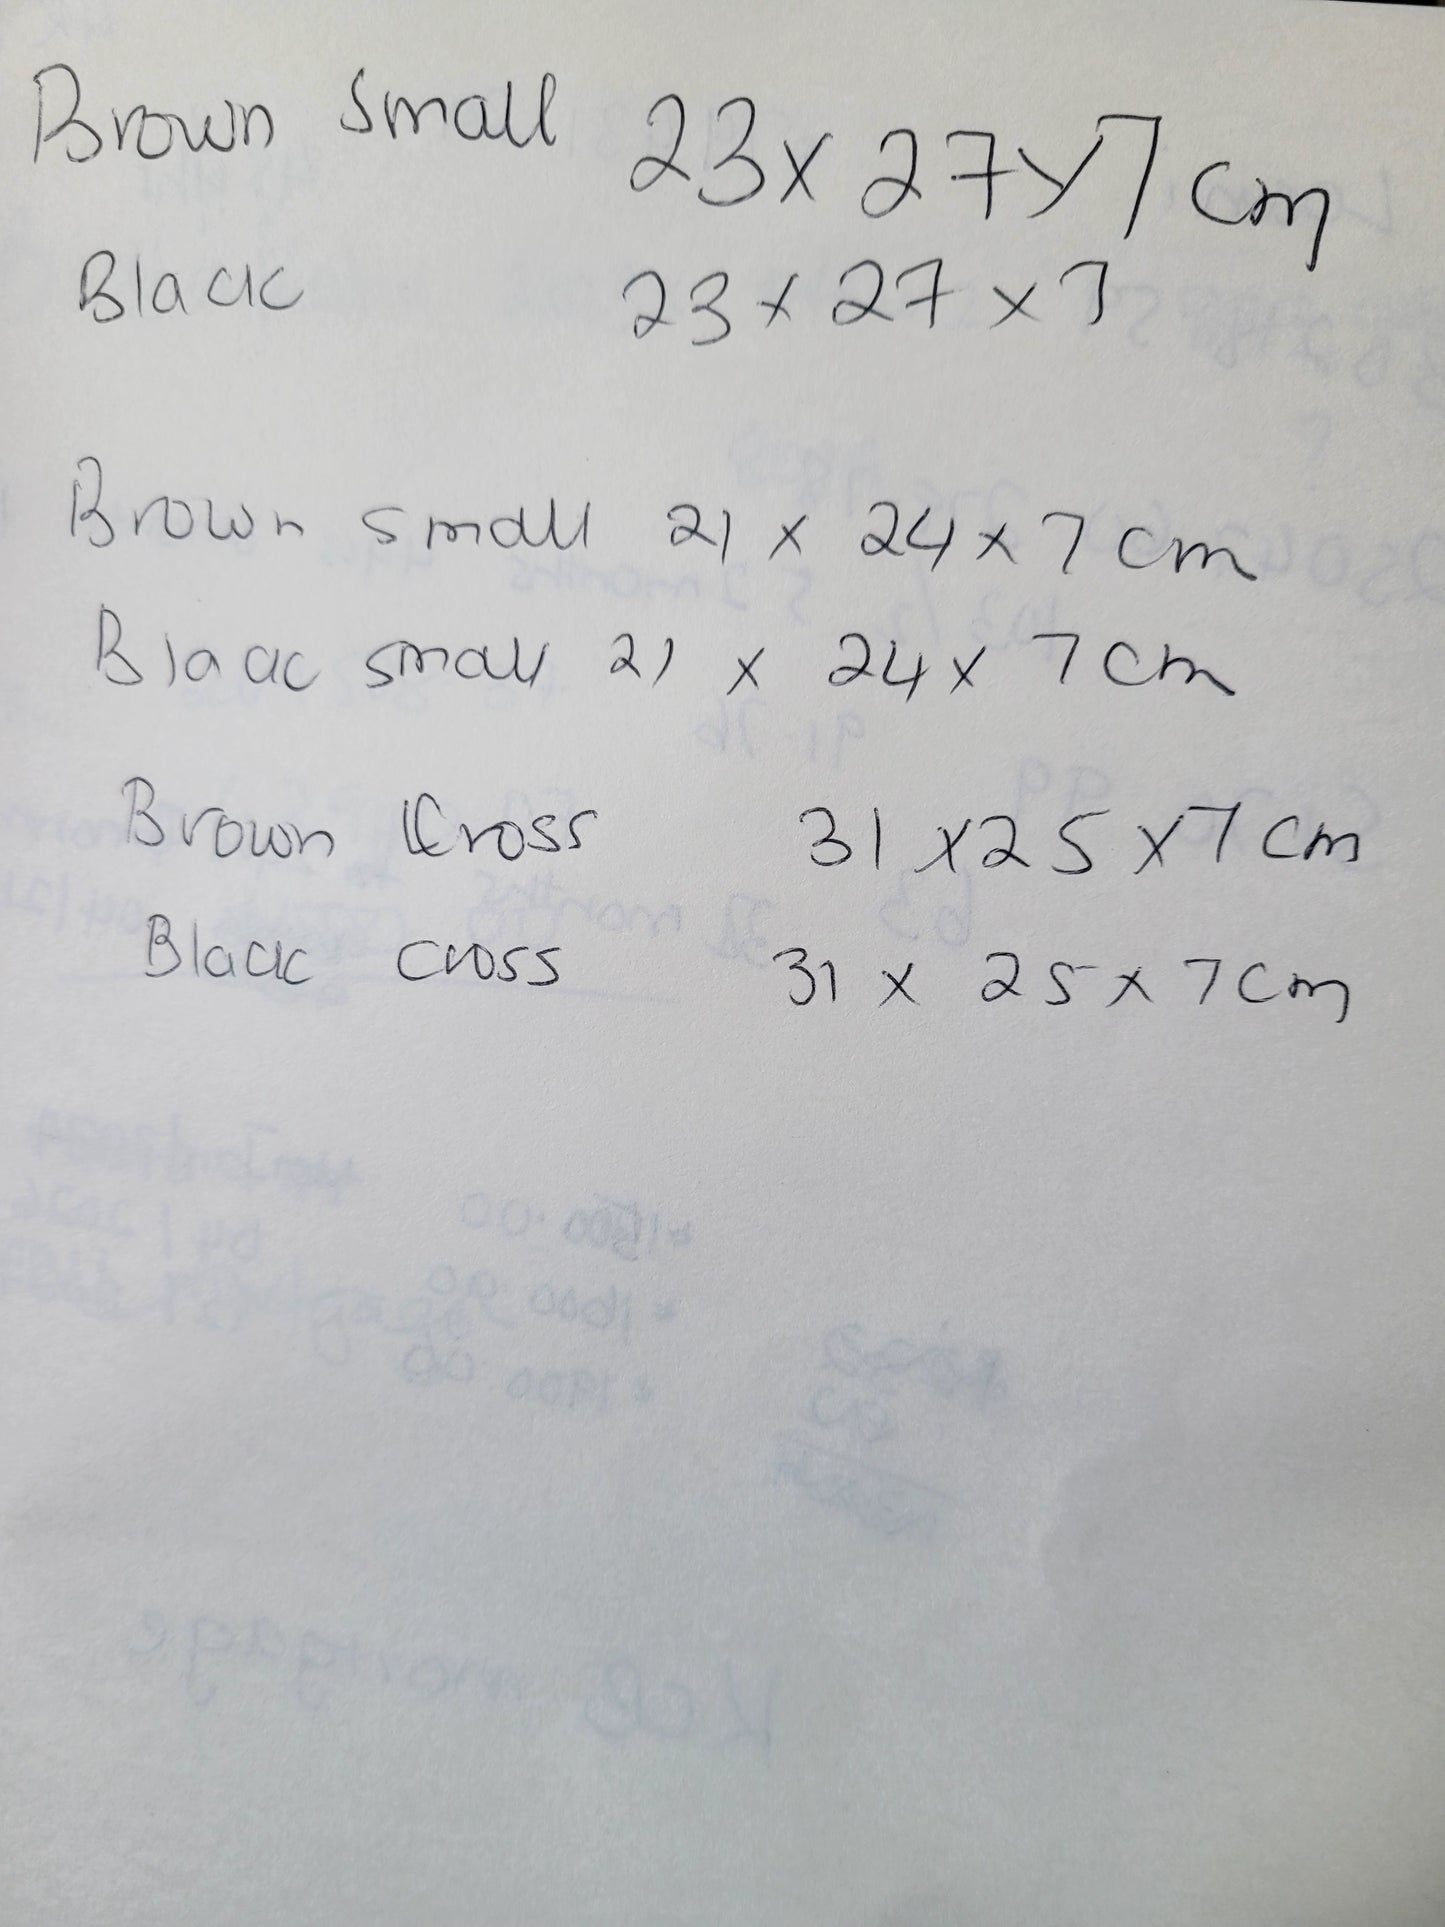 Brown small 23 x 27 x 7 cm
Black 23 x 27 x 7
Brown small 21 x 24 x 7 cm
Blaac small 21 x 24 x 7 cm
Brown Cross 31 x 25 x 7 cm
Black cross 31 x 25 x 7 cm